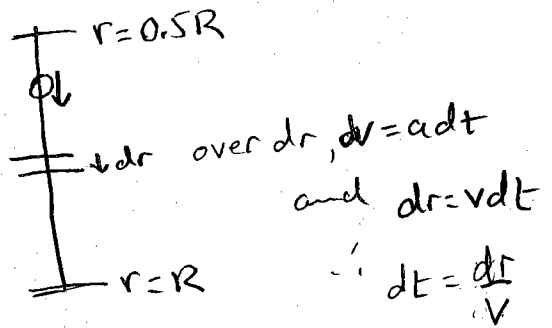 r=0.5R
dr over dr, dv=adt
and dr=vdt
∴ dt = dr/v
r=R